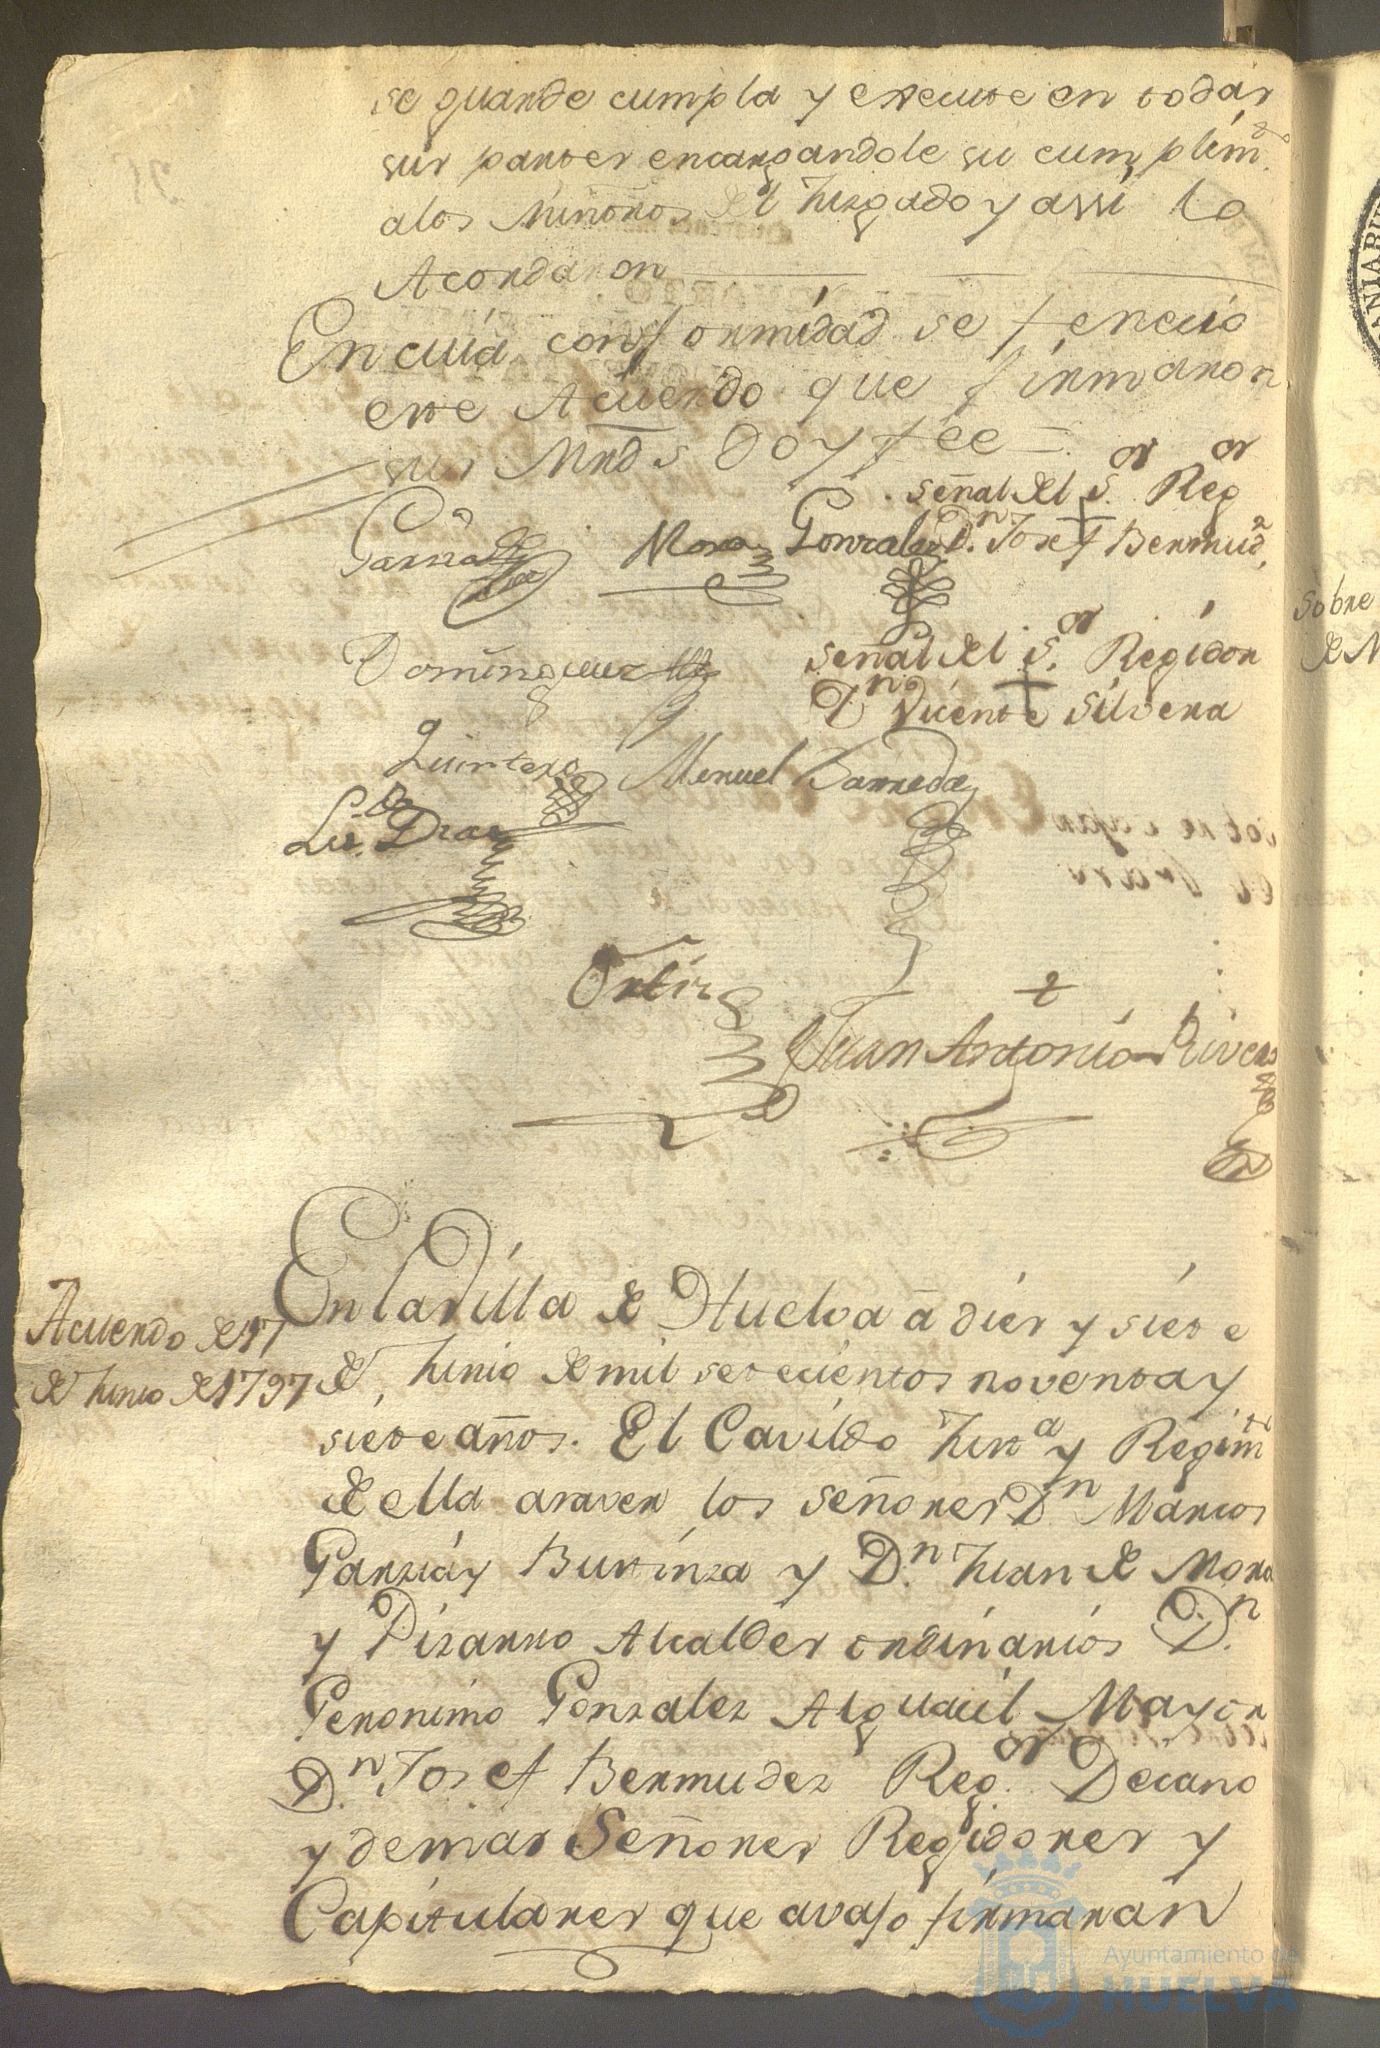 se guarde cumpla y execute en todas
sus partes encargandole su cumplim.to
a los Miñones del Juzgado y assi lo
Acordaron
En cuia conformidad se fenecio
este Acuerdo que firmaron
sus Mrds Doy fee =
señal del S.or Reg.or
Garzia Mora Gonzalez D.n Josef Bermud.z
Dominguez señal del S.or Regidor
D.n Vicente Silvera
Quintero Manuel Barreda
Liz.do Diaz
Ortiz
Juan Antonio Rivera
Acuerdo de 17
de Junio de 1797
En la Villa de Huelva a diez y siete
de Junio de mil setecientos noventa y
siete años. El Cavildo Just.a y Regim.to
de ella asaver los señores D.n Marcos
Garzia y Burinza y D.n Juan de Mora
y Pizarro Alcaldes ordinarios D.n
Geronimo Gonzalez Alguacil Mayor
D.n Josef Bermudez Reg.or Decano
y demas Señores Regidores y
Capitulares que avajo firmaran
Sobre
Ayuntamiento de
HUELVA